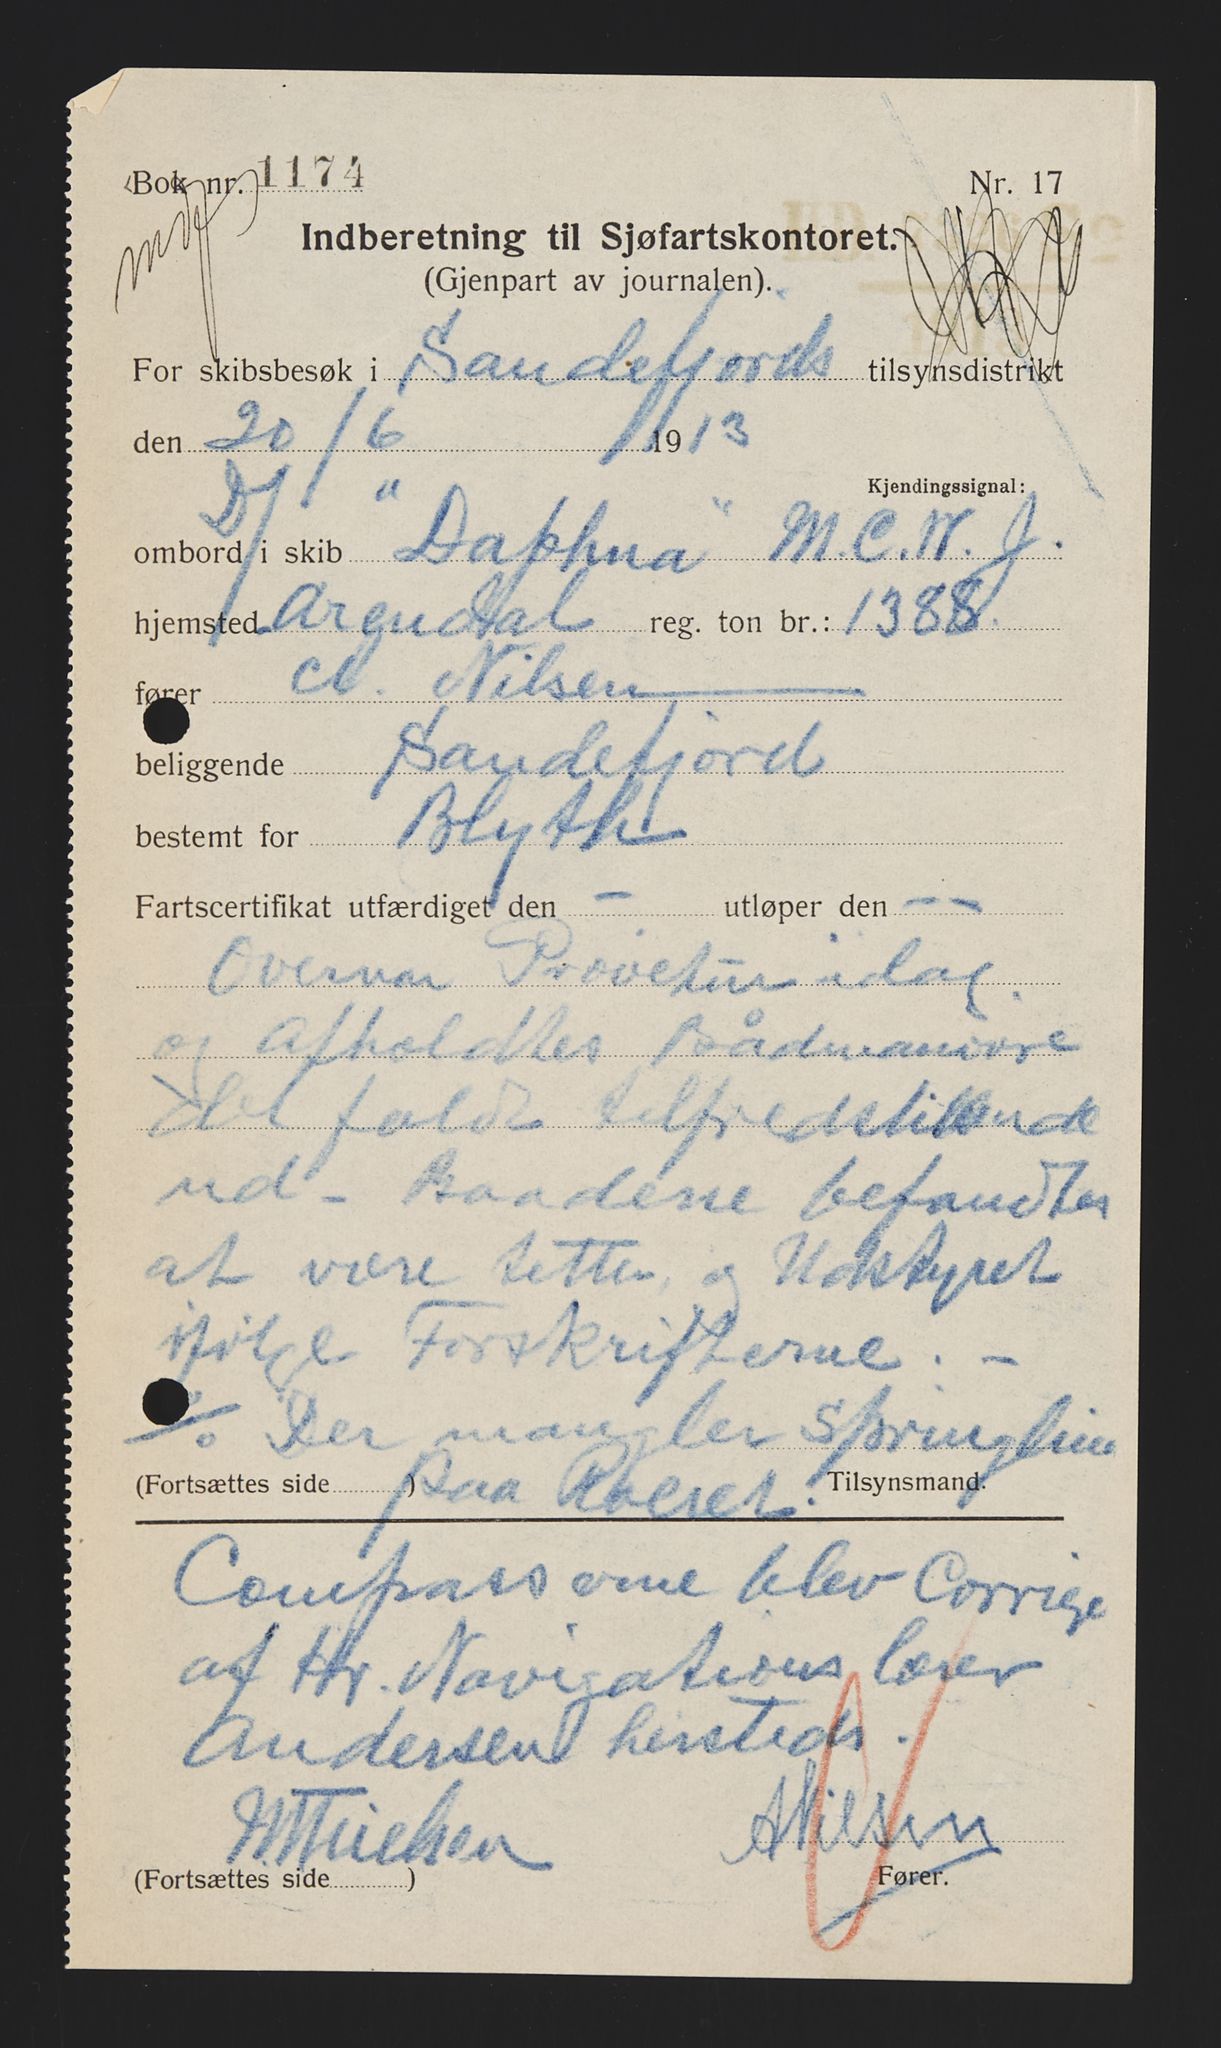 Bok nr. 1174 Nr. 17
Indberetning til Sjøfartskontoret.
(Gjenpart av journalen).
For skibsbesøk i Sandefjords tilsynsdistrikt
den 20/6 1913
Kjendingssignal:
ombord i skib D/ "Daphna" M.C.W.J.
hjemsted Arendal reg. ton br.: 1388.
fører A. Nilsen
beliggende Sandefjord
bestemt for Blyth
Fartscertifikat utfærdiget den – utløper den – –
Overvar Prøvetur idag
og afholdtes Bådmanøvre
det faldt tilfredstillende
ud – Baadene befandtes
at være tette, og Udstyret
ifølge Forskrifterne. –
% Der mangler Springline
paa Roeret.
(Fortsættes side ) Tilsynsmand.
Compasserne blev Corrige
af Hr. Navigationslærer
Andersen hersteds.
A Nilsen
(Fortsættes side ) Fører.